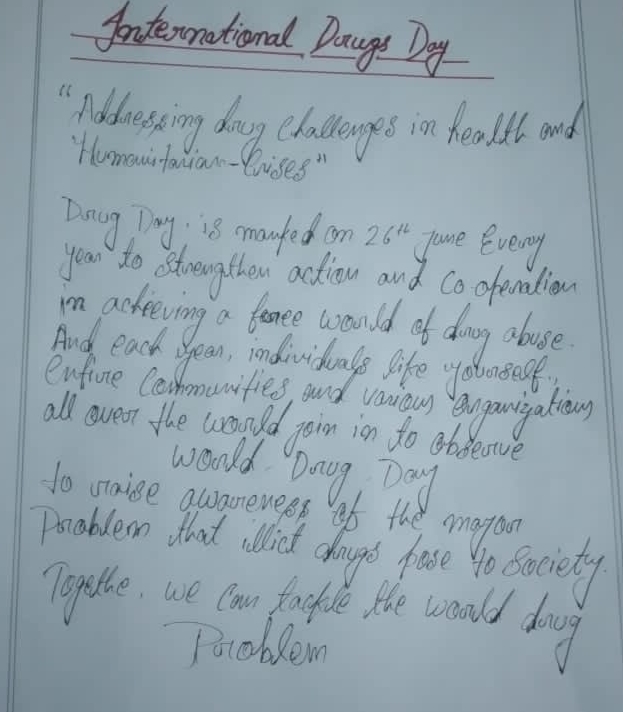 International Drugs Day
"Addressing drug Challenges in health and
"Humanitarian-Crises"
Drug Day. is marked on 26th June Every
year to Strengthen action and Co operation
in achieving a free world of drug abuse.
And each year, individuals like yourself,
Entire Communities and various Organizations
all over the world join in to observe
World Drug Day
to raise awareness of the major
Problem that illict drugs pose to Society.
Togethe, we can tackle the world drug
Problem